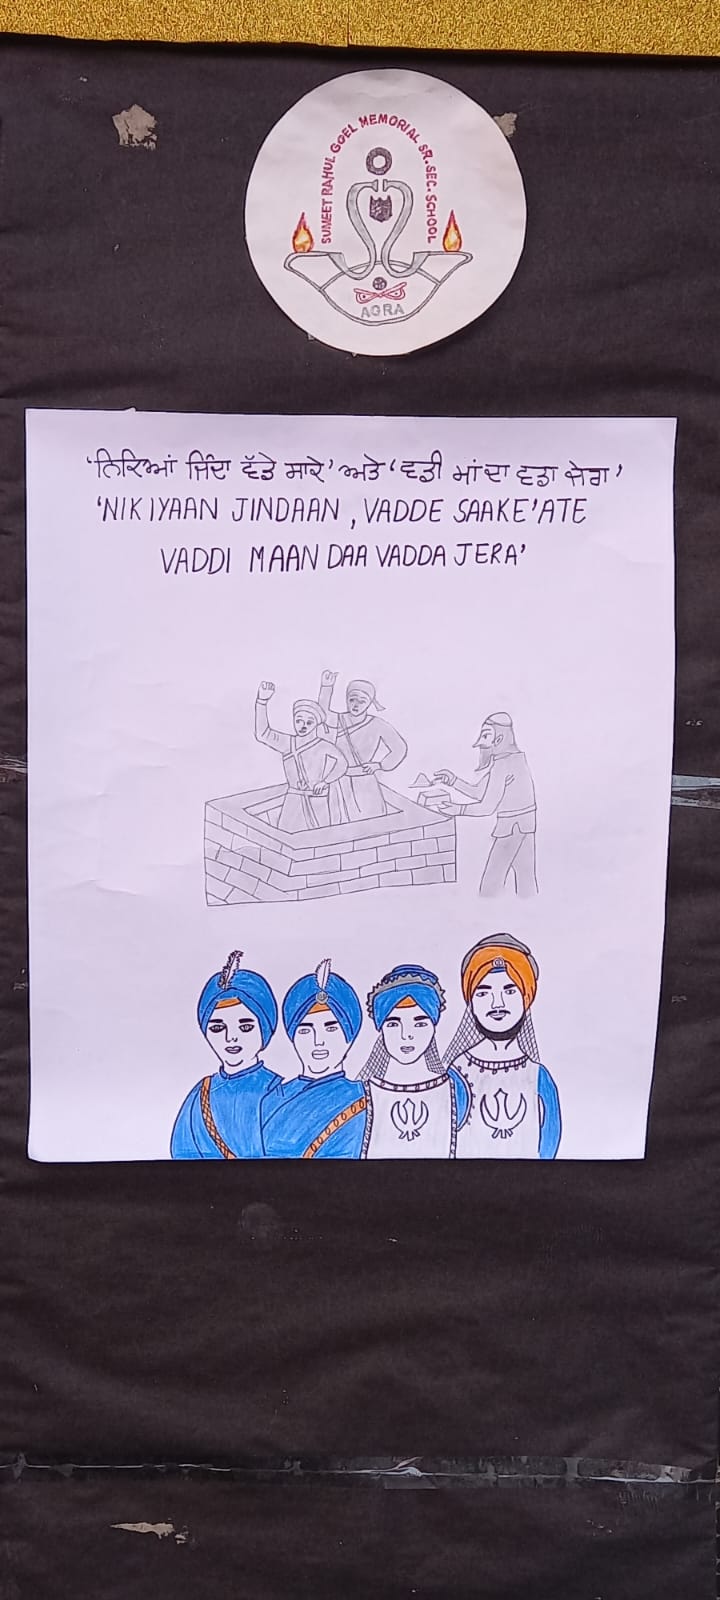 SUMEET RAHUL GOEL MEMORIAL SR. SEC. SCHOOL
AGRA
'ਨਿਕਿਆਂ ਜਿੰਦਾ ਵੱਡੇ ਸਾਕੇ' ਅਤੇ 'ਵਡੀ ਮਾਂ ਦਾ ਵਡਾ ਜੇਰਾ'
'NIKIYAAN JINDAAN, VADDE SAAKE' ATE
VADDI MAAN DAA VADDA JERA'